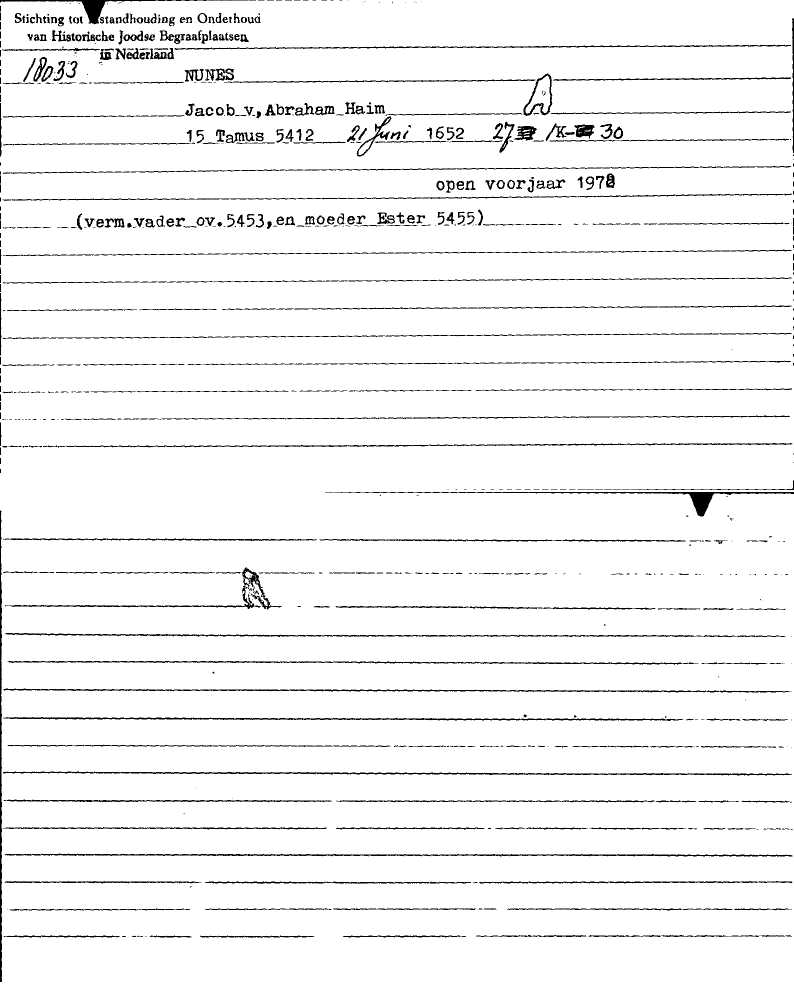 Stichting tot standhouding en Onderhoud
van Historische Joodse Begraafplaatsen
in Nederland
18033
NUNES
Jacob v, Abraham Haim
15 Tamus 5412 21 Juni 1652 27 /K- 30
open voorjaar 1978
(verm.vader ov.5453, en moeder Ester 5455)